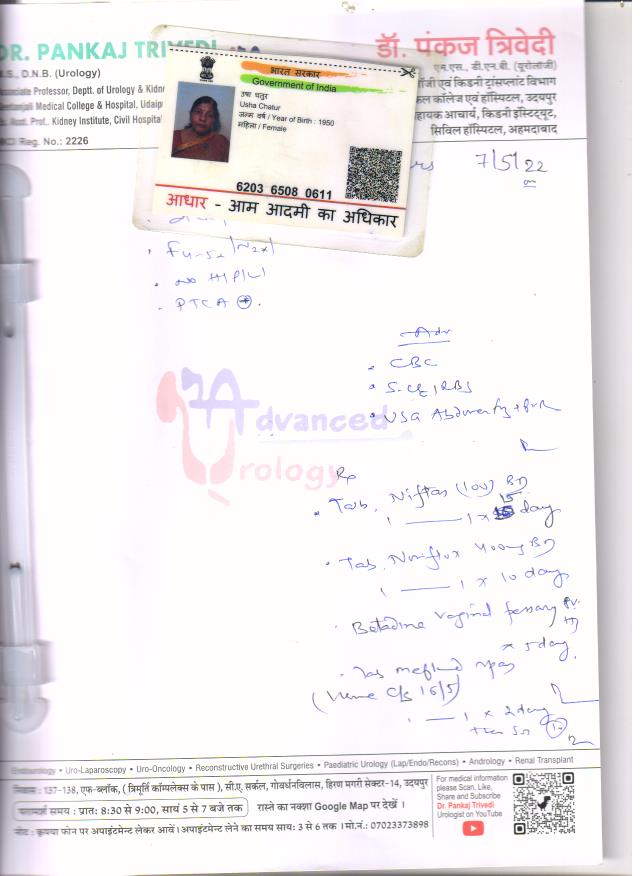 DR. PANKAJ TRIVEDI
D.N.B. (Urology)
Professor, Deptt. of Urology &
Medical College & Hospital,
Prof., Kidney Institute, Civil
Reg. No.: 2226
डॉ. पंकज त्रिवेदी
एम.एस., डी.एन.बी. (यूरोलॉजी)
एवं किडनी ट्रांसप्लांट विभाग
कॉलेज एवं हॉस्पिटल, उदयपुर
आचार्य, किडनी इंस्टिट्यूट,
सिविल हॉस्पिटल, अहमदाबाद
भारत सरकार
Government of India
उषा चतुर
Usha Chatur
जन्म वर्ष / Year of Birth : 1950
महिला / Female
6203 6508 0611
आधार - आम आदमी का अधिकार
7/5/22
PTCA +
Adv
CBC
USG
Advanced
Urology
Rx
Tab. Niftas (100) BD
1 — 1 x 15 day
Tab. BD
1 — 1 x 10 day
Betadine vaginal pessary
x 5 day.
Tab meftal spas
(Urine C/s 16/5)
1 — 1 x 2 day
Uro-Laparoscopy • Uro-Oncology • Reconstructive Urethral Surgeries • Paediatric Urology (Lap/Endo/Recons) • Andrology • Renal Transplant
निवास : 137-138, एफ-ब्लॉक, ( त्रिमूर्ति कॉम्पलेक्स के पास ), सी.ए. सर्कल, गोवर्धनविलास, हिरण मगरी सेक्टर-14, उदयपुर
परामर्श समय : प्रातः 8:30 से 9:00, सायं 5 से 7 बजे तक
रास्ते का नक्शा Google Map पर देखें ।
नोट : कृपया फोन पर अपाइंटमेन्ट लेकर आवें । अपाइंटमेन्ट लेने का समय सायः 3 से 6 तक । मो.नं.: 07023373898
For medical information
please Scan, Like,
Share and Subscribe
Dr. Pankaj Trivedi
Urologist on YouTube